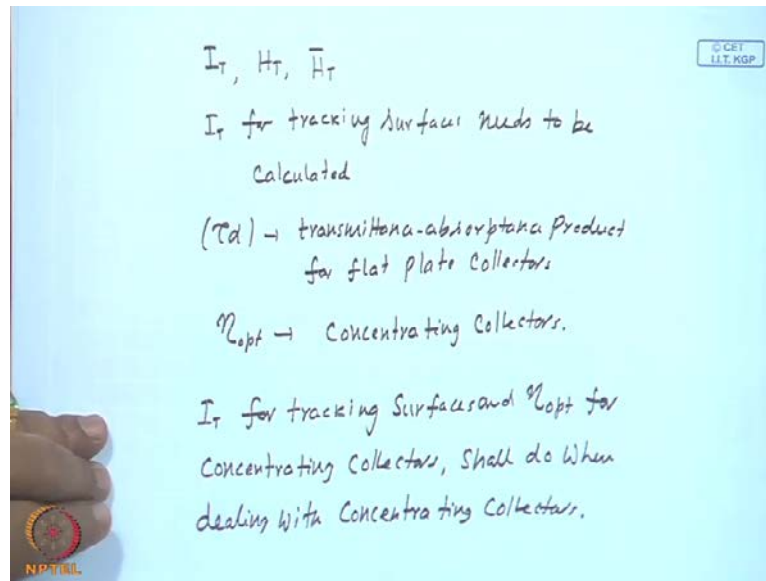 I_T, H_T, H̅_T
© CET
I.I.T. KGP
I_T for tracking surfaces needs to be
calculated
(τα) → transmittance-absorptance product
for flat plate collectors
η_opt → Concentrating Collectors.
I_T for tracking Surfaces and η_opt for
Concentrating Collectors, Shall do when
dealing with Concentrating Collectors.
NPTEL